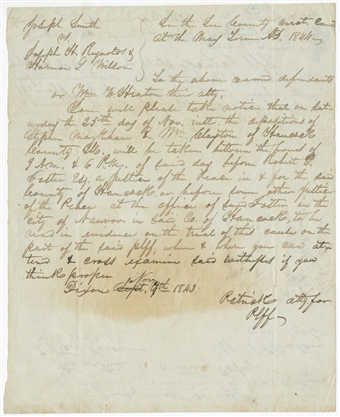 Joseph Smith
vs
Joseph H. Reynolds &
Harmon T. Wilson
In the Lee County Circuit Court
At the May Term AD. 1844
To the above named defendants
or Wm E Heaton their atty,
You will please take notice that on Sat
urday the 25th day of Nov, inst, the depositions of
Stephen Markham & Wm Clayton of Hancock
County Ill. will be taken between the hours of
9 A.m. & 6 P.m. of said day before Robert D.
Foster Esq. a Justice of the Peace in & for the said
County of Hancock, or before some other Justice
of the Peace at the office of said Foster in the
city of Nauvoo in said Co. of Hancock, to be
used in evidence on the trial of this cause on the
part of the said plff, when & where you can at
tend & cross examine said witnesses if you
think proper
Nov
Dixon Sept. 9th 1843
Patrick atty for
Plff